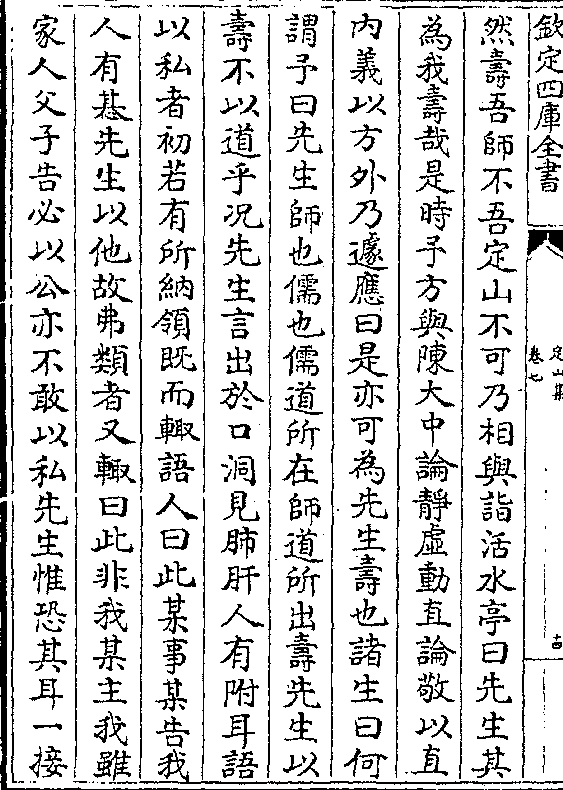 欽定四庫全書
定山集
卷七
十四
然壽吾師不吾定山不可乃相與詣活水亭曰先生其
為我壽哉是時予方與陳大中論靜虛動直論敬以直
内義以方外乃遽應曰是亦可為先生壽也諸生曰何
謂予曰先生師也儒也儒道所在師道所出壽先生以
壽不以道乎况先生言出於口洞見肺肝人有附耳語
以私者初若有所納領既而輙語人曰此某事某告我
人有惎先生以他故弗類者又輙曰此非我某主我雖
家人父子告必以公亦不敢以私先生惟恐其耳一接